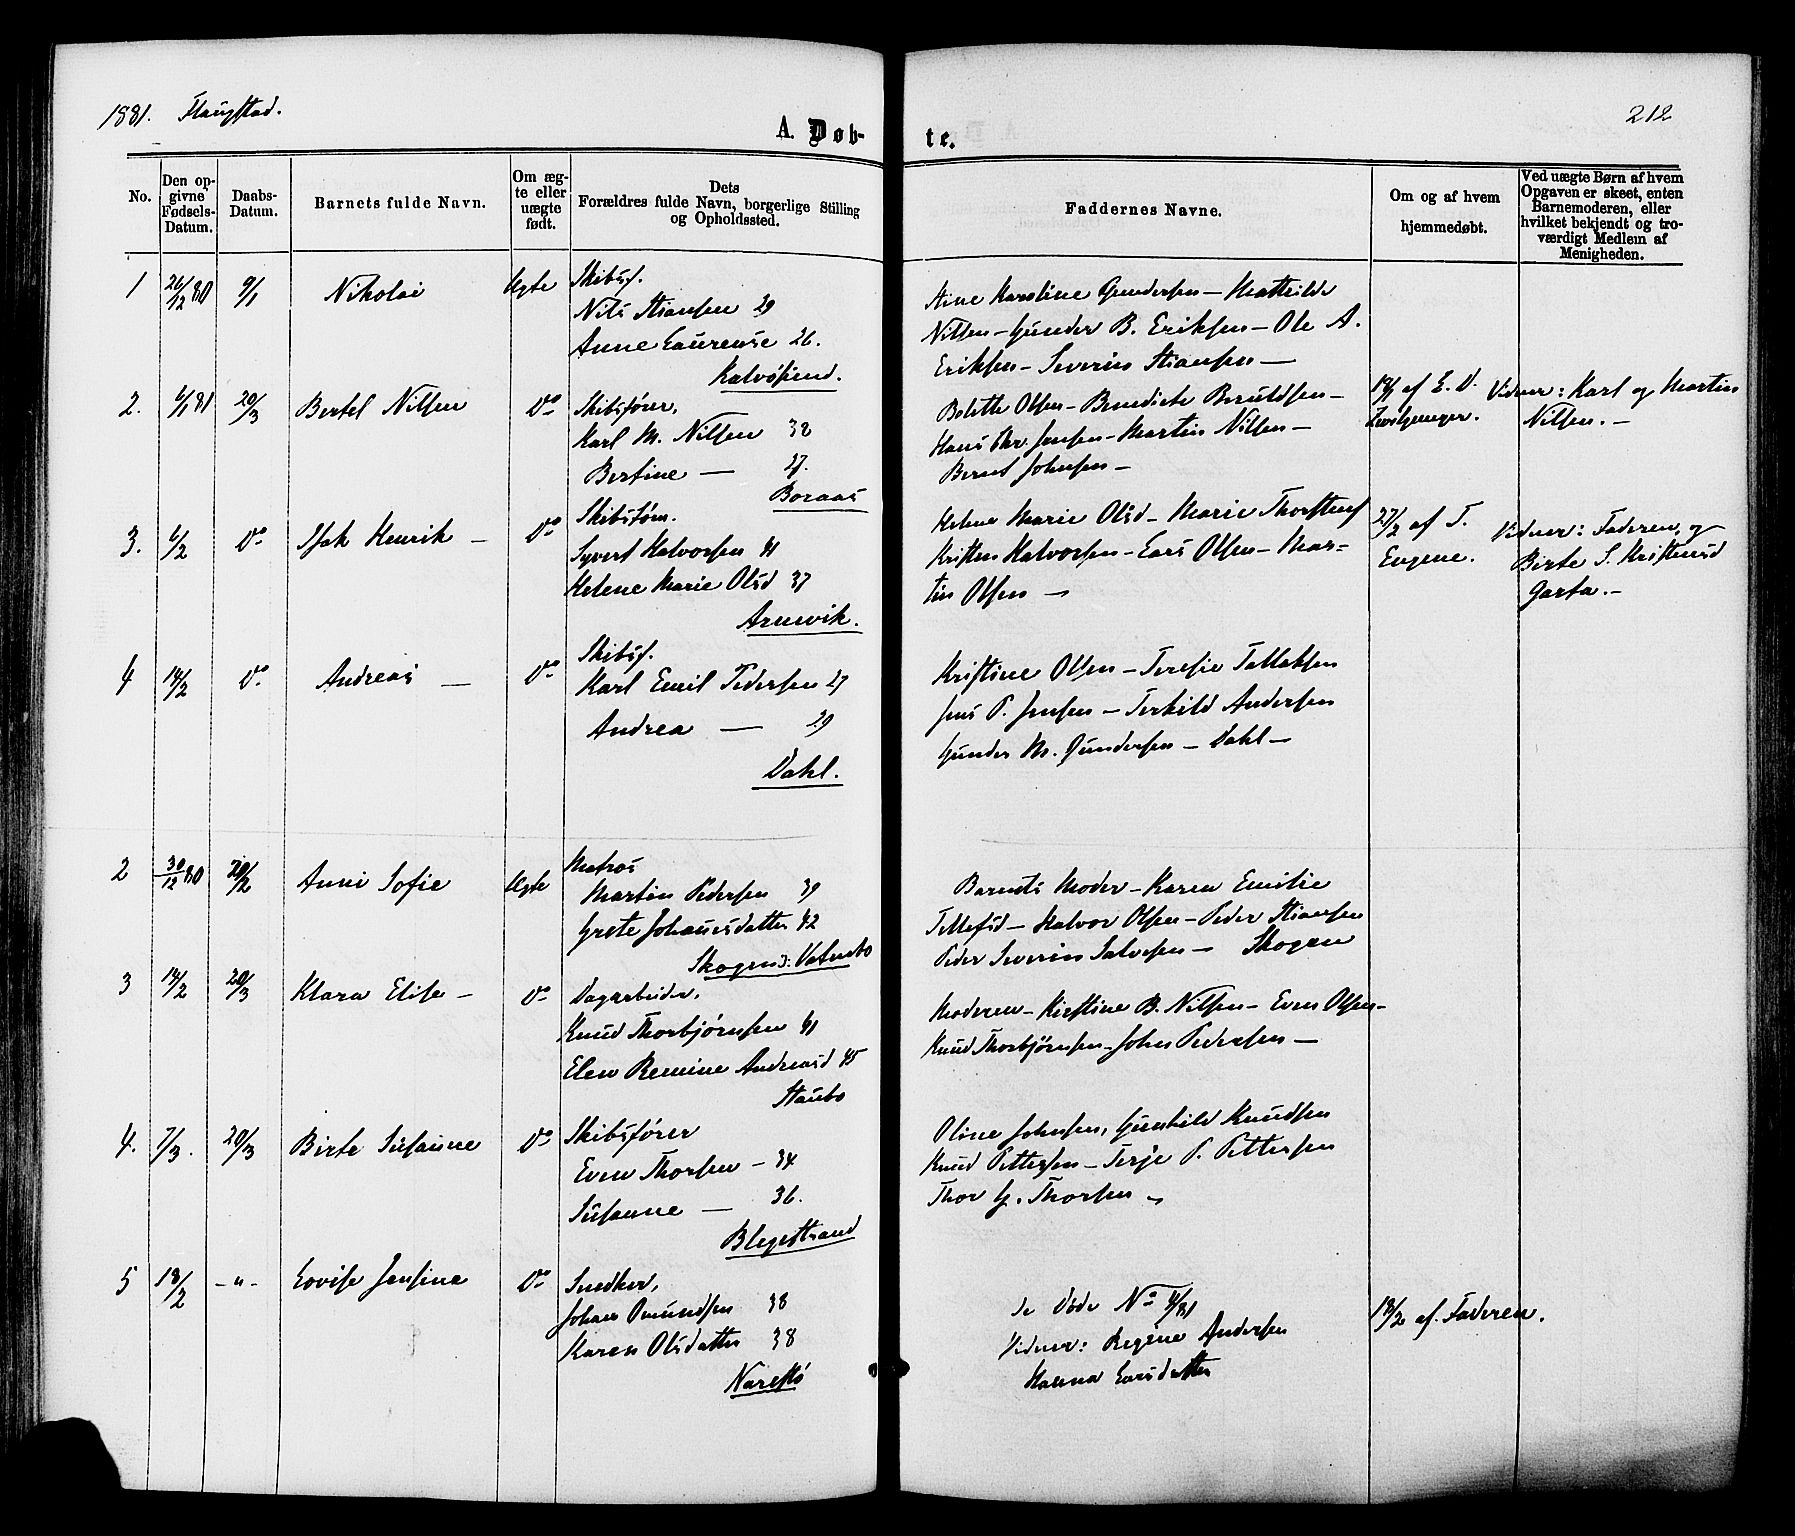 1881. Flangstad.
212
A. Døb-
te.
No.
Den op-
givne
Fødsels-
Datum.
Daabs-
Datum.
Barnets fulde Navn.
Om æg-
te eller
uægte
født.
Dets
Forældres fulde Navn, borgerlige Stilling
og Opholdssted.
Faddernes Navne.
Om og af hvem
hjemmedøbt.
Ved uægte Børn af hvem
Opgaven er skeet, enten
Barnemoderen, eller
hvilket bekjendt og tro-
værdigt Medlem af
Menigheden.
1 26/12 80 9/1 Nikolai Ægte Skibsf.
Nils Stiansen 29
Anne Laurense 26.
Kalvøsund.
Karoline Gundersen — Mathilde
Nilsen — Gunder B. Eriksen — Ole A.
Eriksen — Severin Stiansen —
2. 6/1 81 20/3 Bertel Nilsen Do Skibsfører,
Karl M. Nilsen 32
Bertine — 27.
Boraas
Bolette Olsen — Benedicte Beruldsen —
Hans Chr. Jensen — Martin Nilsen —
Bernt Johnsen —
18/1 af E. D.
Vidner: Karl og Martin
Nilsen. —
3. 6/2 Do Isak Henrik — Do Skibstøm.
Syvert Halvorsen 41
Helene Marie Olsd 37
Arnevik.
Helene Marie Olsd — Marie Thorstens
Kristen Halvorsen — Lars Olsen — Mar-
tin Olsen —
27/2 af T.
Eugene.
Vidner: Faderen, og
Birte S. Kristensd
Garta. —
4 14/2 Do Andreas — Do Skibsf.
Karl Emil Pedersen 27
Andrea — 29
Dahl.
Kristine Olsen — Teresie Tallaksen
Jens P. Jensen — Terkild Andersen
Gunder M. Gundersen — Dahl —
2 30/12 80 20/2 Anne Sofie Ægte Matros
Martin Pedersen 39
Grete Johannesdatter 42
Skogen i: Vatnebo
Barnets Moder — Karen Emilie
Tellefsd — Halvor Olsen — Peder Stiansen
Peder Severin Salvesen — Skogen
3 14/2 20/3 Klara Elise — Do Dagarbeider,
Knud Thorbjørnsen 41
Elen Remine Andreasd 45
Staubo
Moderen — Kirstine B. Nilsen — Even Olsen —
Knud Thorbjørnsen — John Pedersen —
4. 7/3. 20/3 Birte Susanne Do Skibsfører
Even Thorsen — 34
Susanne — 36.
Blegestrand
Oline Johnsen, Gunhild Knudsen
Knud Pettersen — Terje P. Pettersen
Thor G. Thorsen —
5 18/2 -"- Lovise Jensine Do Snedker,
Johan Omundsen 38
Karen Olsdatter 38
Narestø
se Døde No 4/81
Vidner: Regine Andersen
Hanna Larsdatter
18/2 af. Faderen.